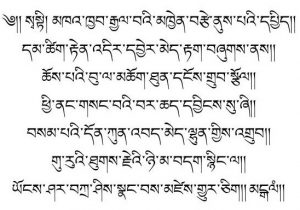 ༄༅།། སྭསྟི། མཁའ་ཁྱབ་རྒྱལ་བའི་མཁྱེན་བརྩེ་ནུས་པའི་དཔྱིད།།
དམ་ཚིག་རྟེན་འདིར་དབྱེར་མེད་རྟག་བཞུགས་ནས།།
ཆོས་པའི་བུ་ལ་མཆོག་ཐུན་དངོས་གྲུབ་སྩོལ།།
ཕྱི་ནང་གསང་བའི་བར་ཆད་དབྱིངས་སུ་ཞི།།
བསམ་པའི་དོན་ཀུན་འབད་མེད་ལྷུན་གྱིས་འགྲུབ།།
གུ་རུའི་ཐུགས་རྗེའི་ཉི་མ་བདག་སྙིང་ལ།།
ཡོངས་ཤར་བཀྲ་ཤིས་སྣང་བས་མཛེས་གྱུར་ཅིག།། མངྒ་ལཾ།།